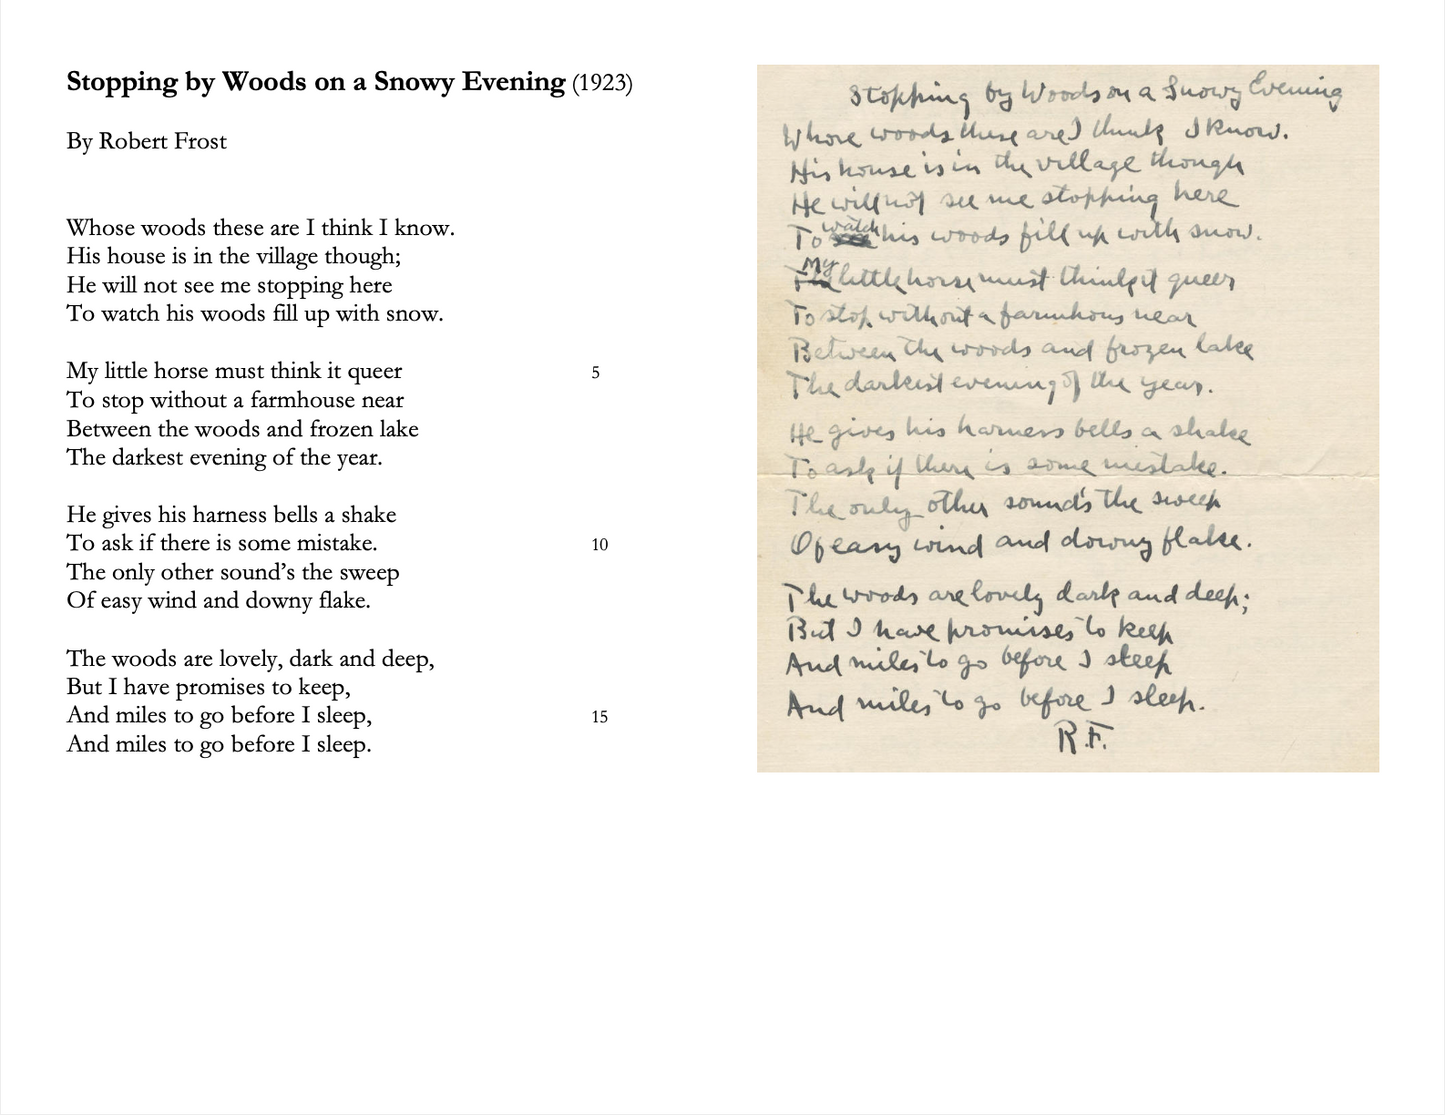 Stopping by Woods on a Snowy Evening (1923)
By Robert Frost
Whose woods these are I think I know.
His house is in the village though;
He will not see me stopping here
To watch his woods fill up with snow.
My little horse must think it queer 5
To stop without a farmhouse near
Between the woods and frozen lake
The darkest evening of the year.
He gives his harness bells a shake
To ask if there is some mistake. 10
The only other sound’s the sweep
Of easy wind and downy flake.
The woods are lovely, dark and deep,
But I have promises to keep,
And miles to go before I sleep, 15
And miles to go before I sleep.
Stopping by Woods on a Snowy Evening
Whose woods these are I think I know.
His house is in the village though
He will not see me stopping here
To watch his woods fill up with snow.
My little horse must think it queer
To stop without a farmhous near
Between the woods and frozen lake
The darkest evening of the year.
He gives his harness bells a shake
To ask if there is some mistake.
The only other sound's the sweep
Of easy wind and downy flake.
The woods are lovely dark and deep;
But I have promises to keep
And miles to go before I sleep
And miles to go before I sleep.
R.F.